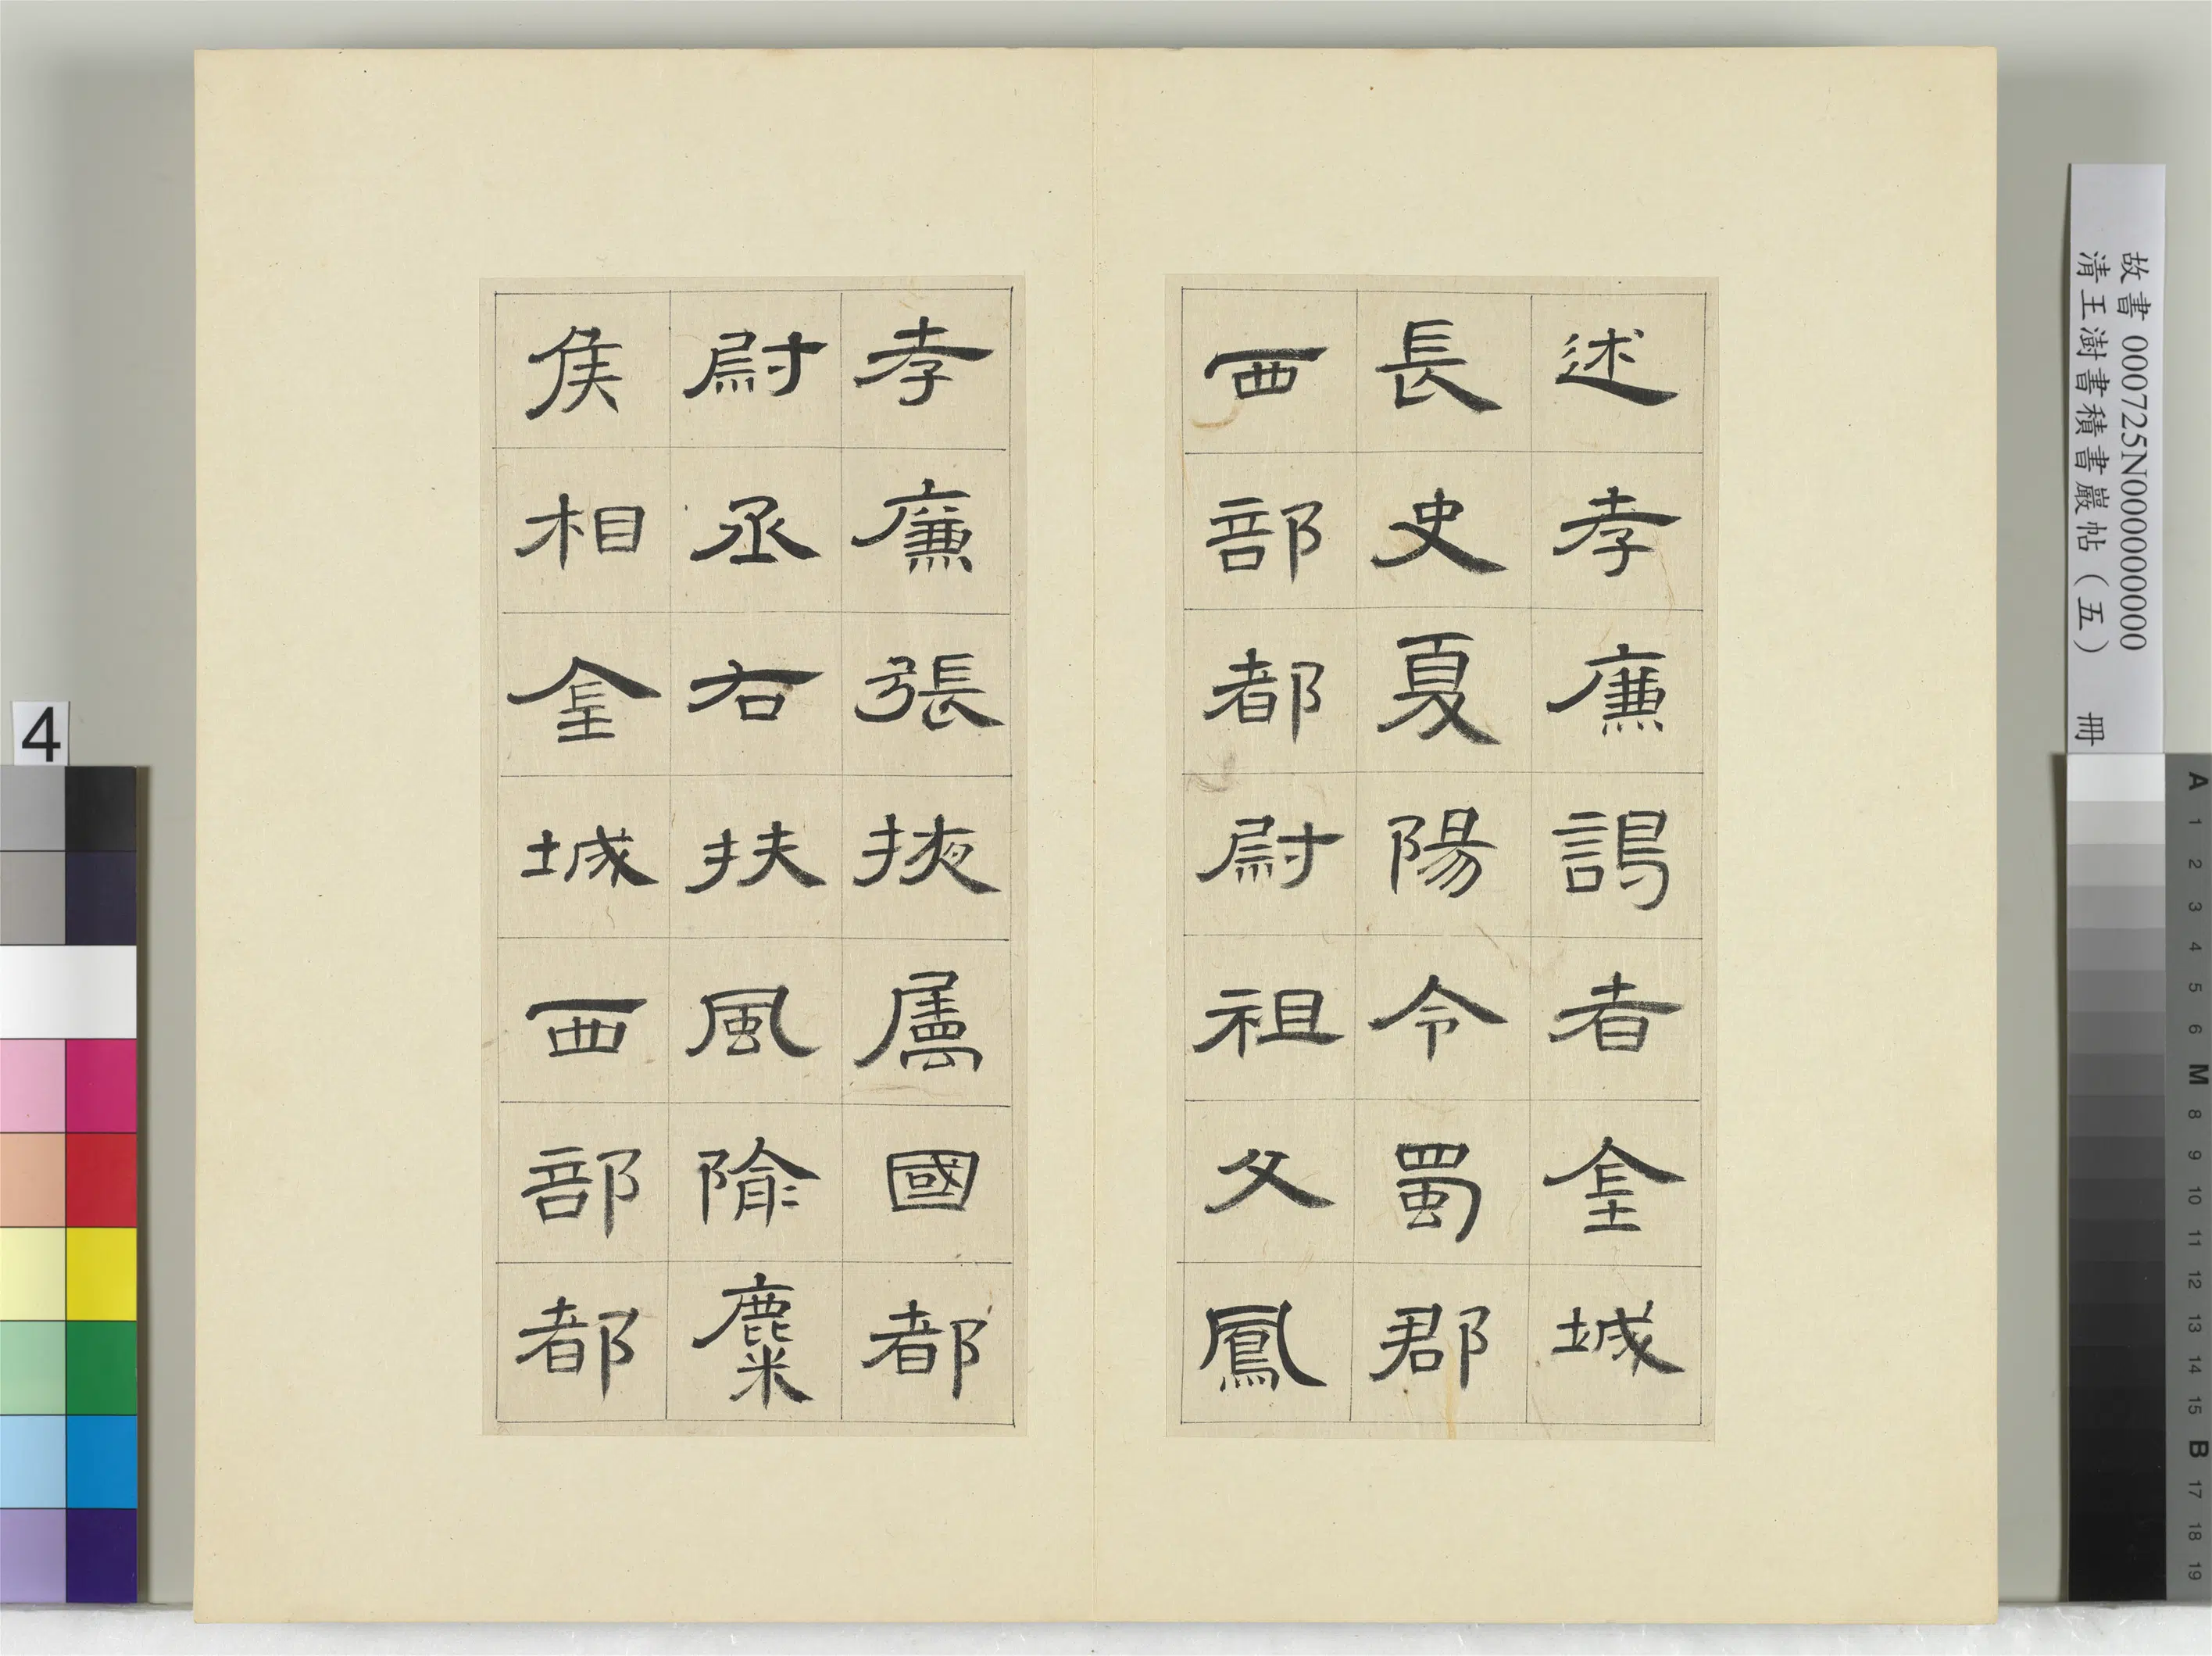 述孝廉謁者金城
長史夏陽令蜀郡
西部都尉祖父鳳
孝廉張掖屬國都
尉丞右扶風隃麋
侯相金城西部都
故書 000725N000000000
清王澍書積書巖帖（五） 冊
4
A 1 2 3 4 5 6 M 8 9 10 11 12 13 14 15 B 17 18 19